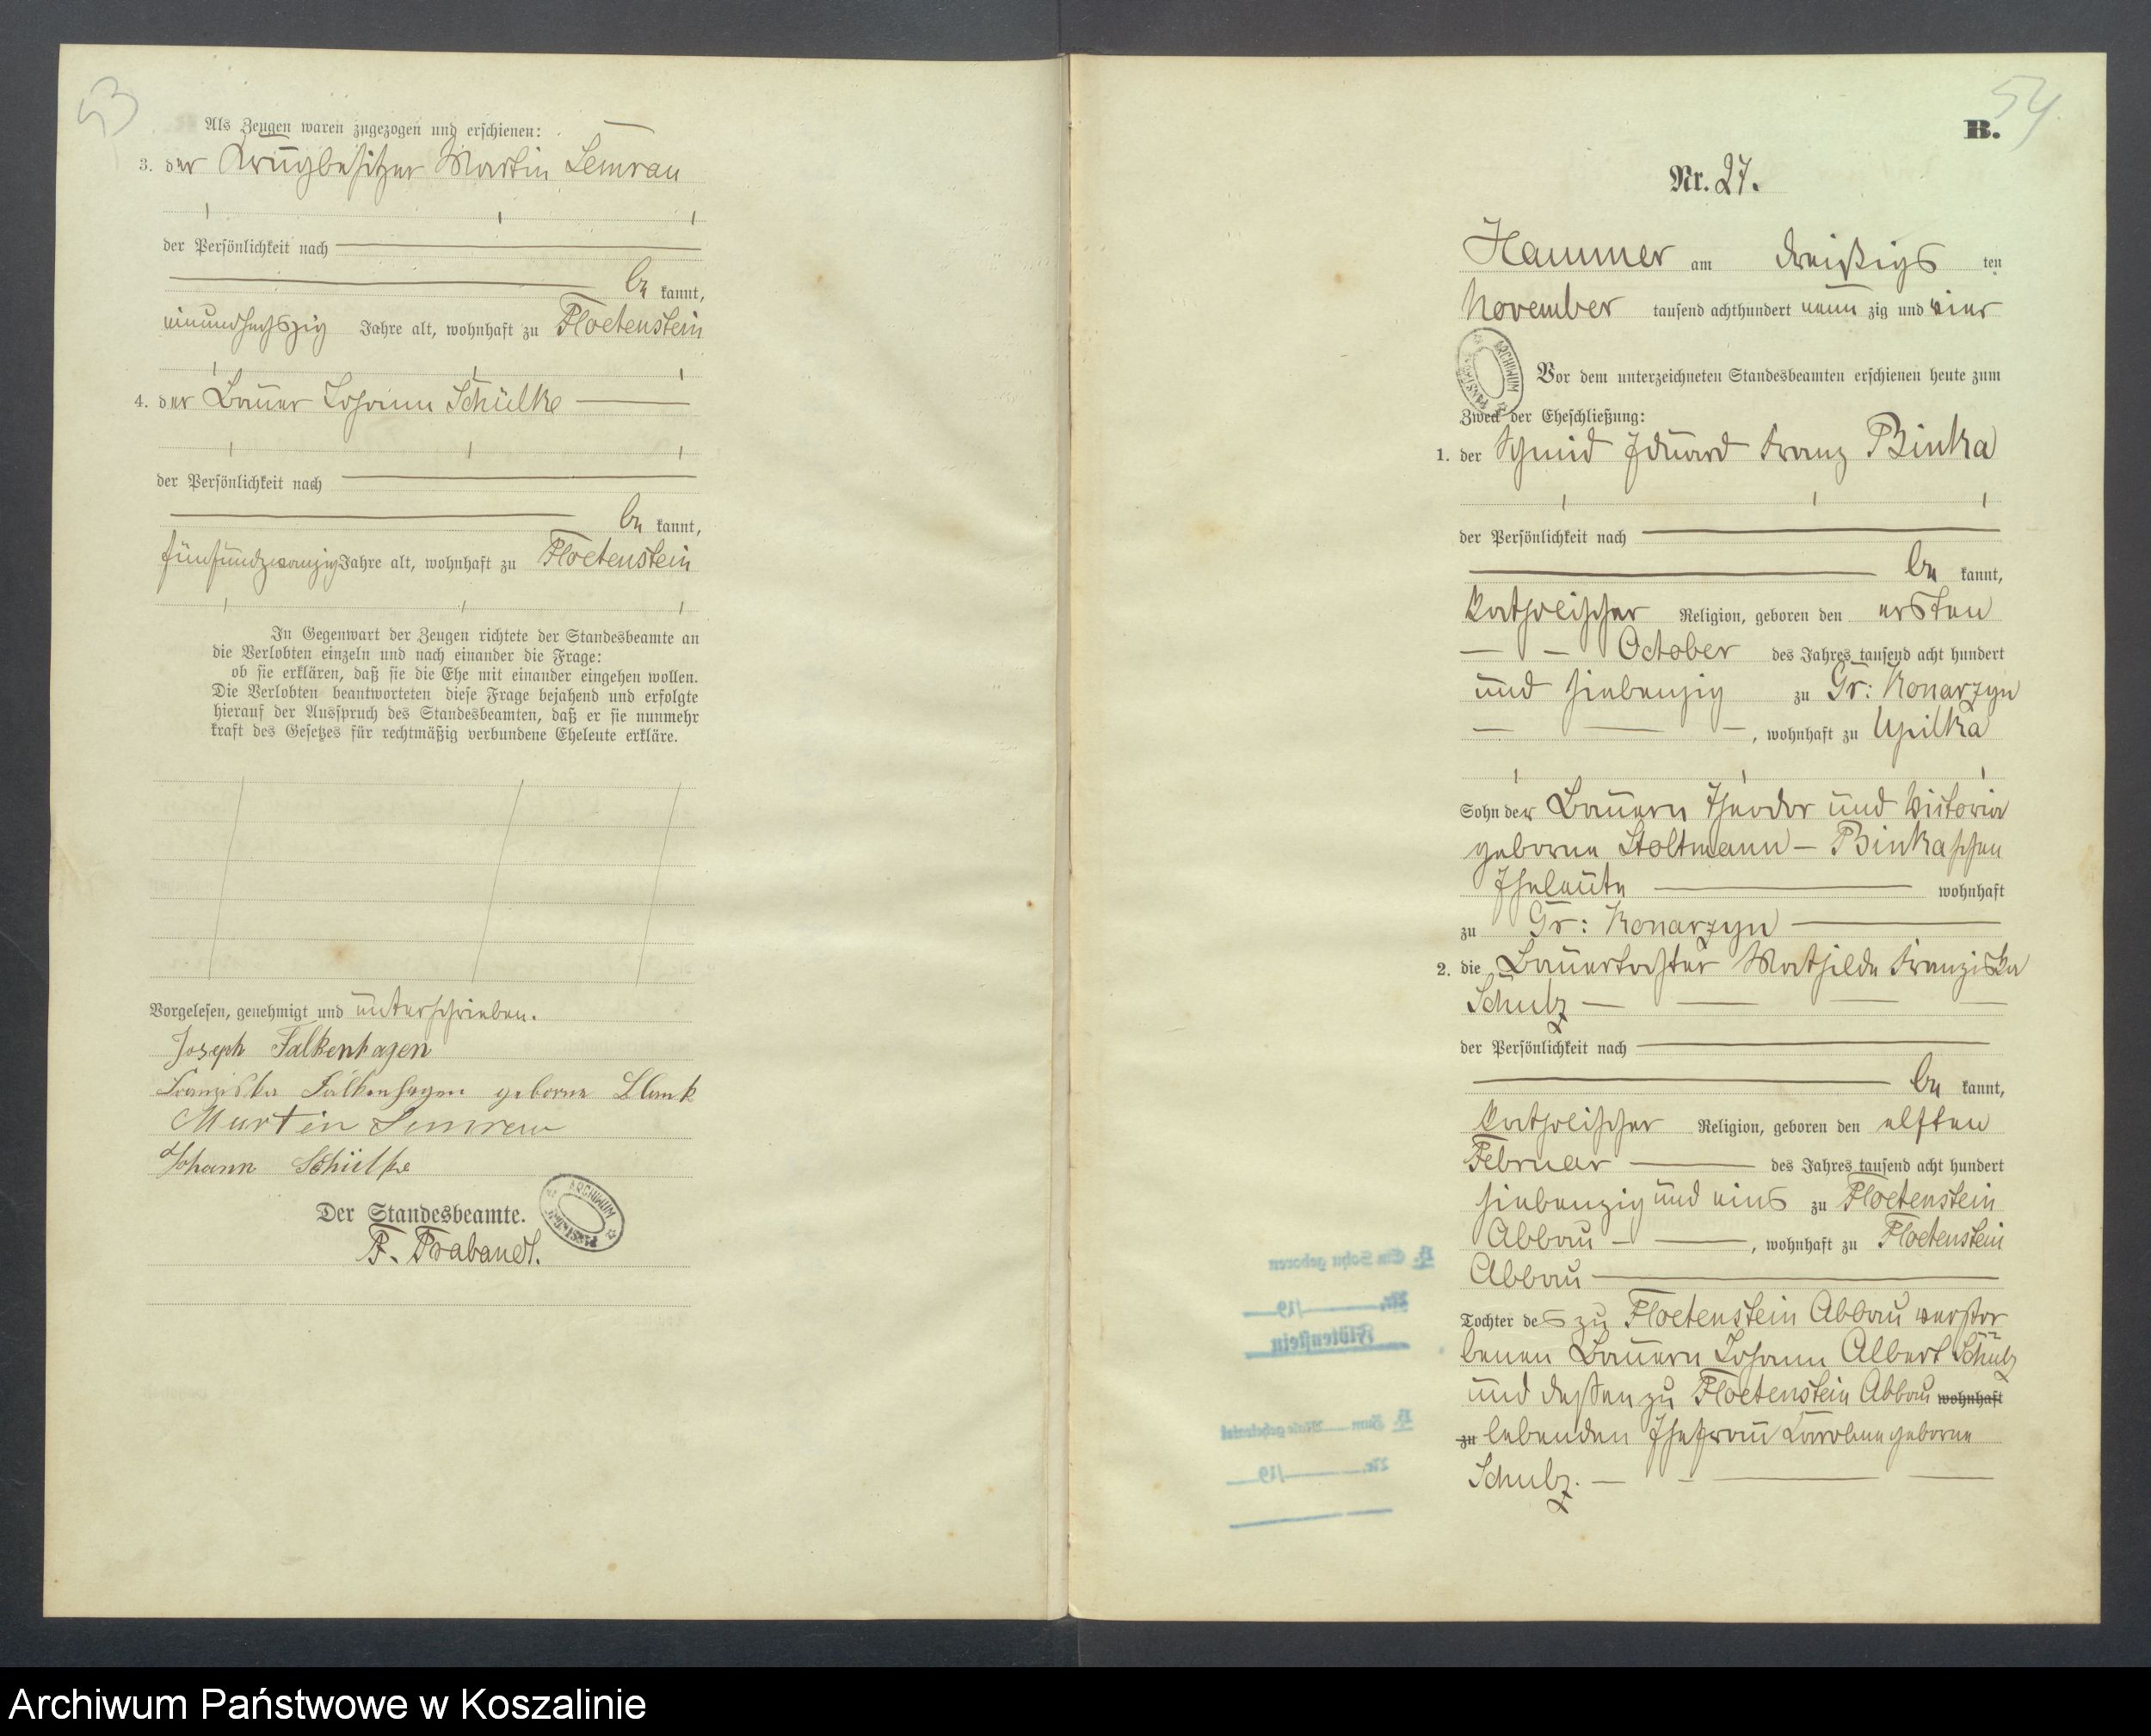 53
Als Zeugen waren zugezogen und erschienen:
3. der Krugbesitzer Martin Semrau
der Persönlichkeit nach
be kannt,
einundsechszig Jahre alt, wohnhaft zu Floetenstein
4. der Bauer Johann Schülke
der Persönlichkeit nach
be kannt,
fünfundzwanzig Jahre alt, wohnhaft zu Floetenstein
In Gegenwart der Zeugen richtete der Standesbeamte an
die Verlobten einzeln und nach einander die Frage:
ob sie erklären, daß sie die Ehe mit einander eingehen wollen.
Die Verlobten beantworteten diese Frage bejahend und erfolgte
hierauf der Ausspruch des Standesbeamten, daß er sie nunmehr
kraft des Gesetzes für rechtmäßig verbundene Eheleute erkläre.
Vorgelesen, genehmigt und unterschrieben.
Joseph Falkenhagen
Franziska Falkenhagen geborne Blank
Martin Semrau
Johann Schülke
Der Standesbeamte.
F. Brabandt.
ARCHIWUM
54
B.
Nr. 27.
Hammer am dreißigs ten
November tausend achthundert neun zig und vier
ARCHIWUM
Vor dem unterzeichneten Standesbeamten erschienen heute zum
Zweck der Eheschließung:
1. der Schmid Eduard Franz Binka
der Persönlichkeit nach
be kannt,
katholischer Religion, geboren den ersten
October des Jahres tausend acht hundert
und siebenzig zu Gr: Konarzyn
, wohnhaft zu Upilka
Sohn der Bauern Theodor und Victoria
geborne Stoltmann – Binkaschen
Eheleute wohnhaft
zu Gr: Konarzyn
2. die Bauertochter Mathilde Franziska
Schulz
der Persönlichkeit nach
be kannt,
katholischer Religion, geboren den elften
Februar des Jahres tausend acht hundert
siebenzig und eins zu Floetenstein
Abbau , wohnhaft zu Floetenstein
Abbau
Tochter des zu Floetenstein Abbau verstor
benen Bauern Johann Albert Schulz
und dessen zu Floetenstein Abbau wohnhaft
zu lebenden Ehefrau Caroline geborne
Schulz.
B. Ein Sohn geboren
Nr. /19
Flötenstein
B. Zum
Nr. /19
Archiwum Państwowe w Koszalinie